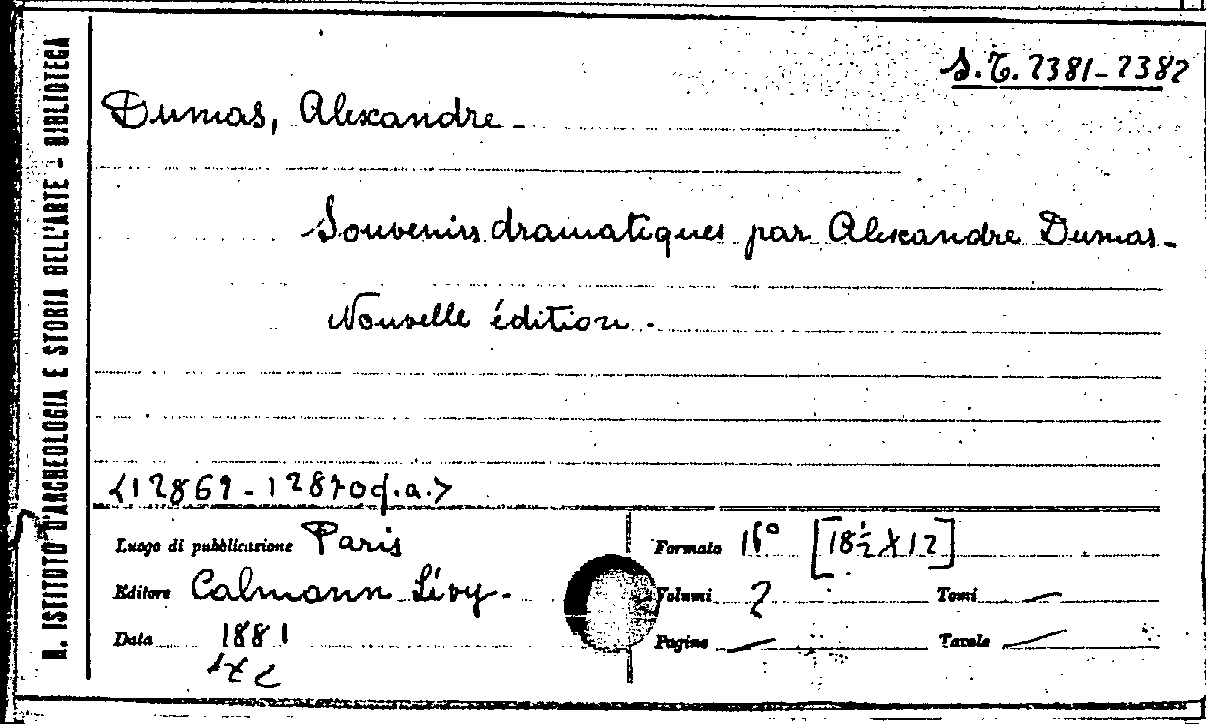 R. ISTITUTO D'ARCHEOLOGIA E STORIA DELL'ARTE - BIBLIOTECA
S.T. 2381-2382
Dumas, Alexandre -
Souvenirs dramatiques par Alexandre Dumas -
Nouvelle édition -
<12869-12870 g.a.>
Luogo di pubblicazione Paris
Formato 16° [18½ X 12]
Editore Calmann Lévy -
Volumi 2 Tomi —
Data 1881
Pagine — Tavole —